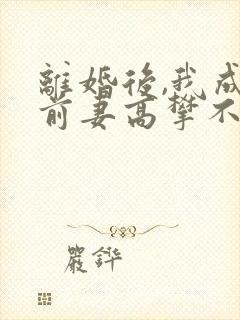 離婚後,我成
前妻高攀不
嚴鏵